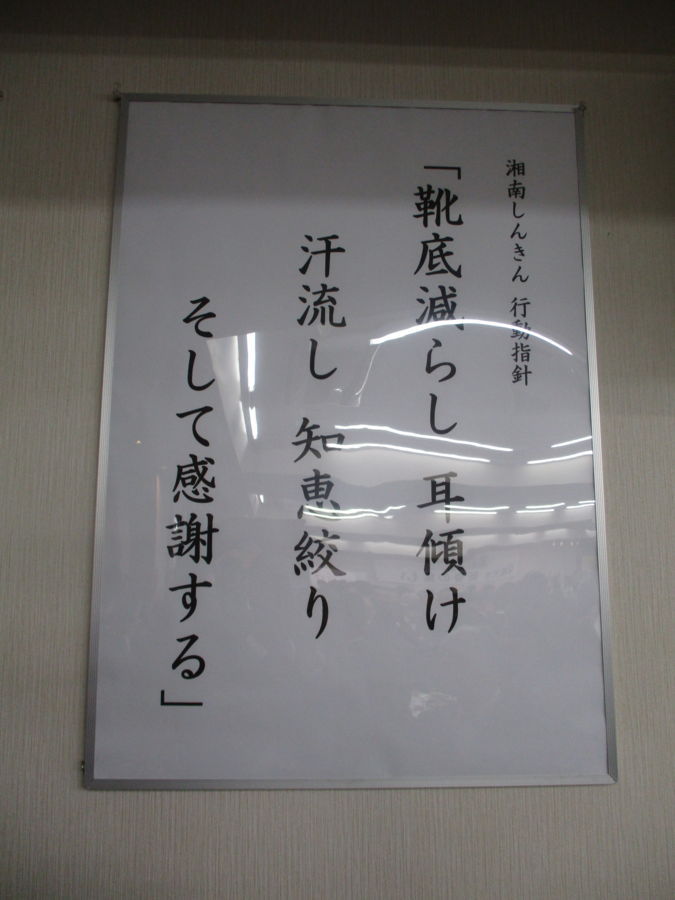 湘南しんきん 行動指針
「靴底減らし 耳傾け
汗流し 知恵絞り
そして感謝する」